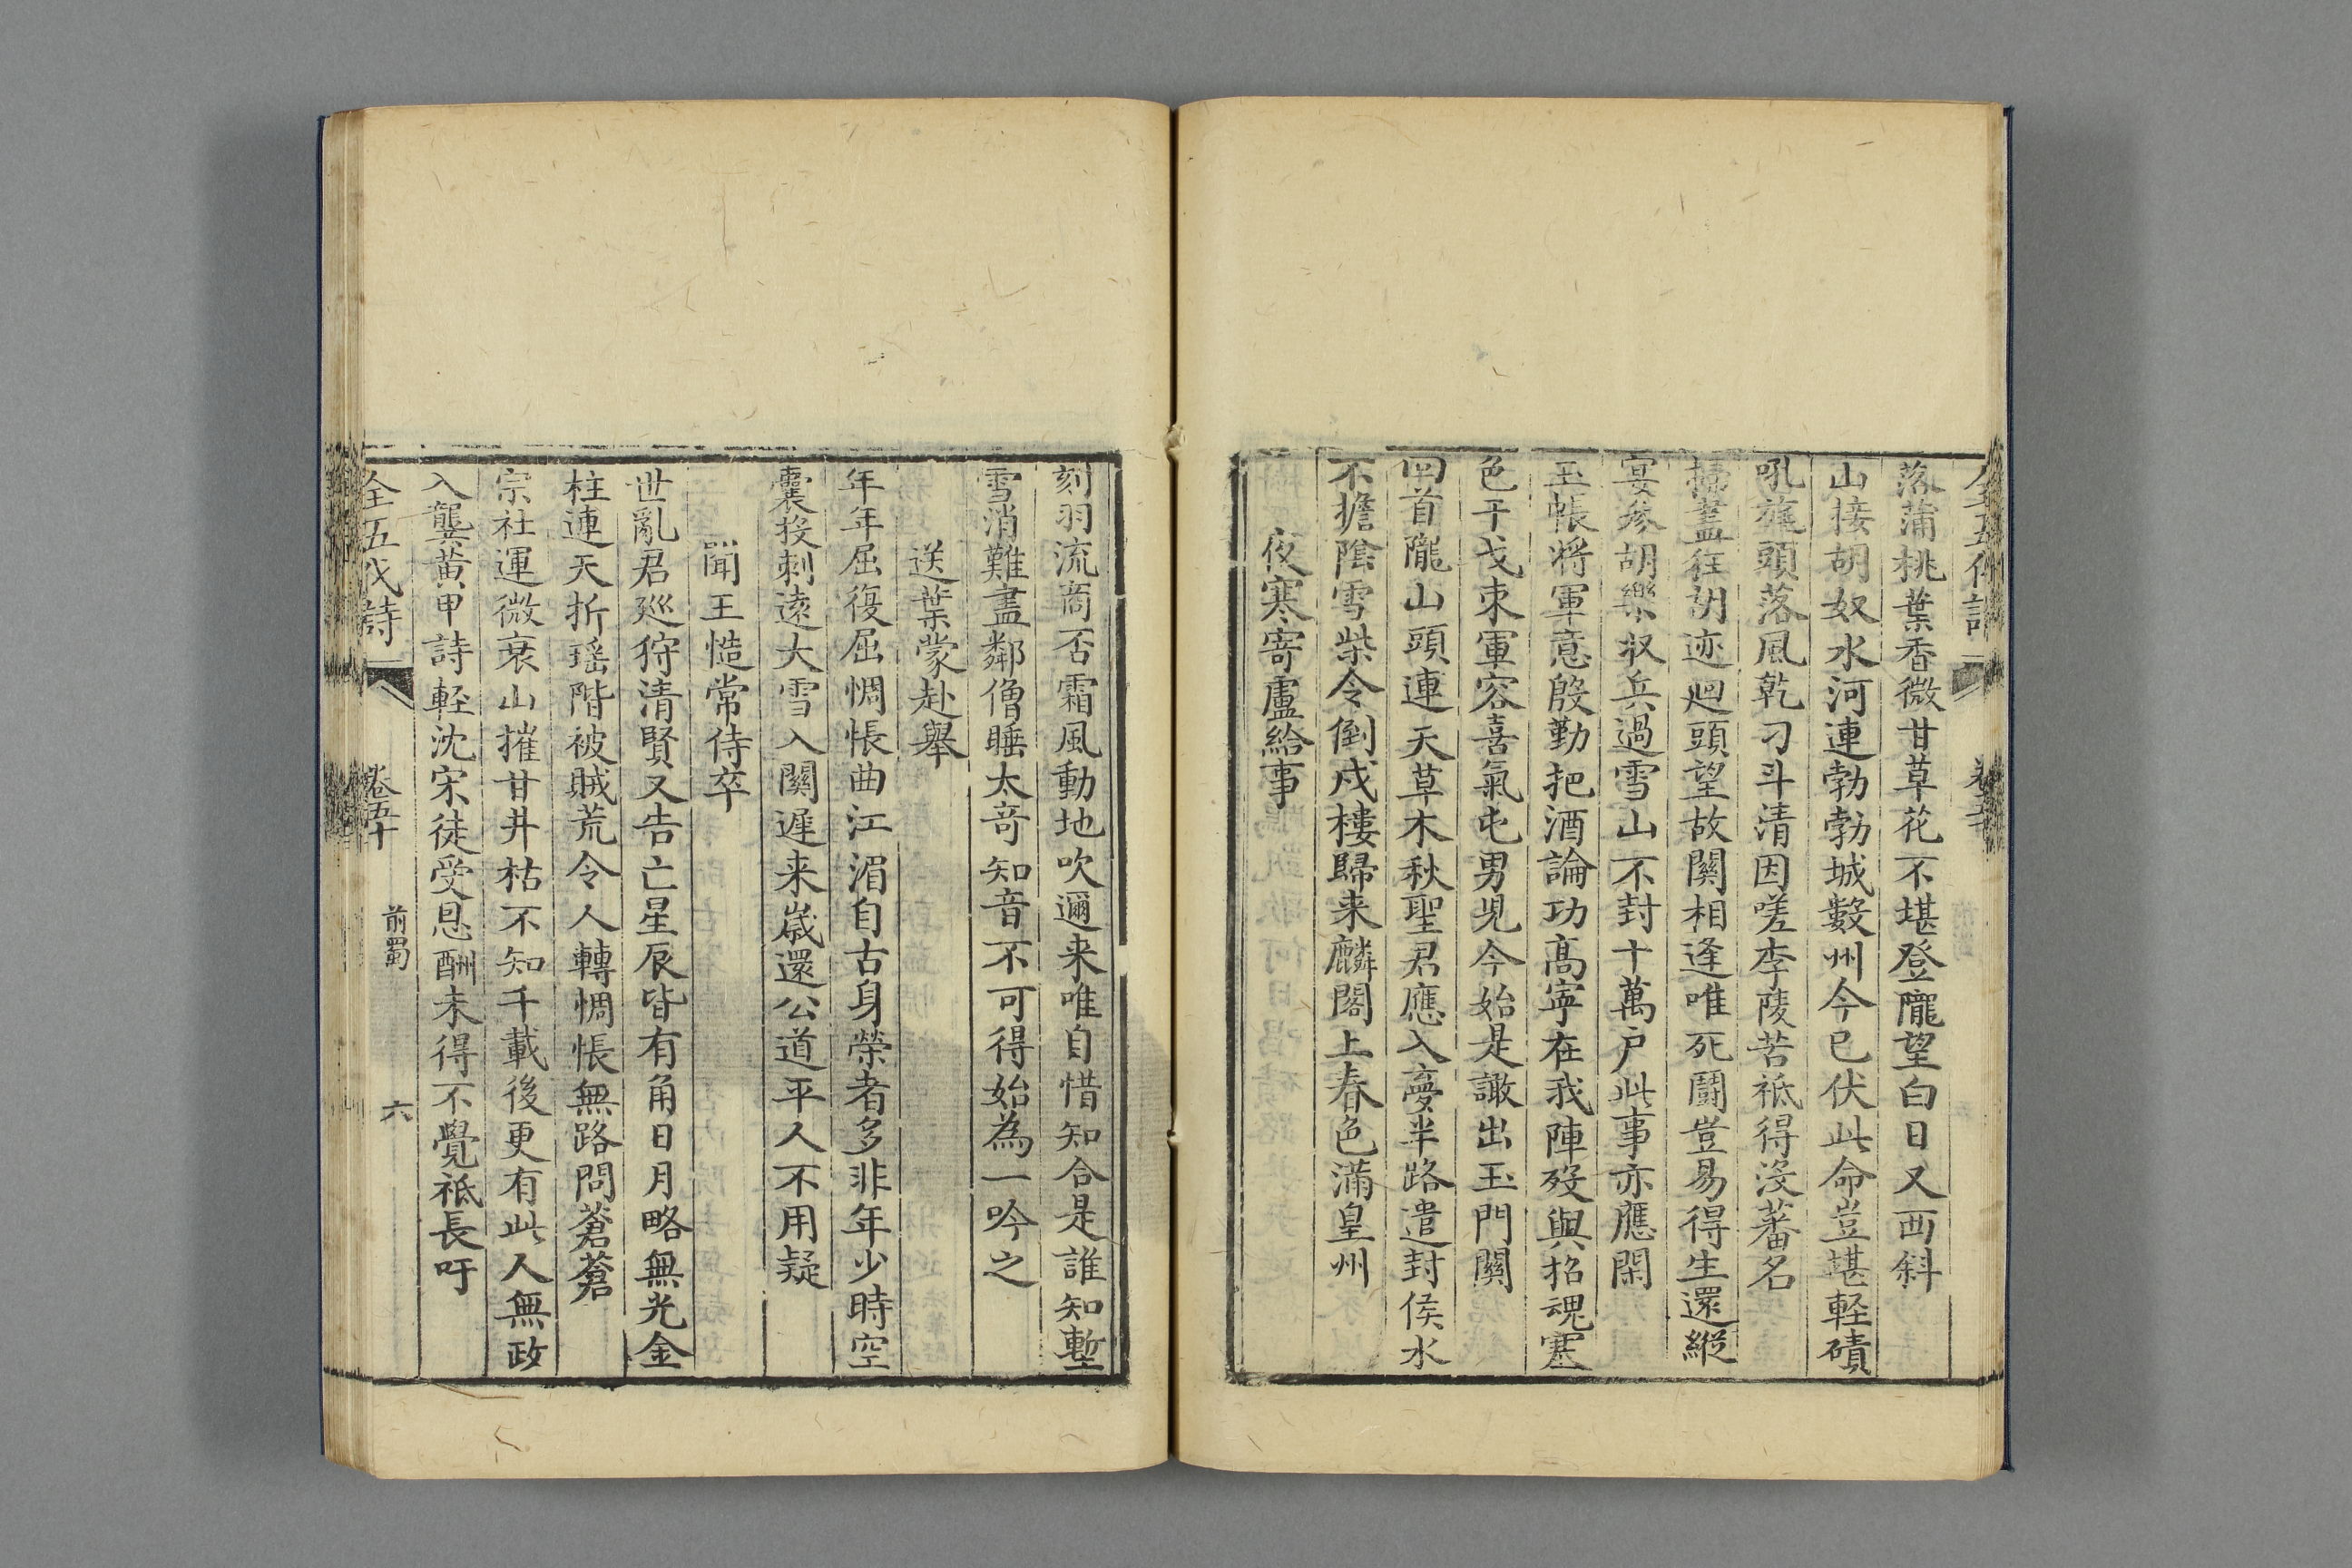 全五代詩 卷五十
落蒲桃葉香微甘草花不堪登隴望白日又西斜
山接胡奴水河連勃勃城數州今已伏此命豈堪軽磧
吼旄頭落風乾刁斗清因嗟李陵苦祗得没蕃名
掃蓋徃胡迹廻頭望故關相逢唯死鬬豈易得生還縱
宴參胡樂収兵過雪山不封十萬户此事亦應閑
玉帳将軍意殷勤把酒論功髙寧在我陣殁與招魂塞
色干戈束軍容喜氣屯男児今始是敢出玉門關
回首隴山頭連天草木秋聖君應入夢半路遣封侯水
不擔隂雪柴令倒戍樓歸来麟閣上春色滿皇州
夜寒寄盧給事
刻羽流商否霜風動地吹邇来唯自惜知合是誰知塹
雪消難盡鄰僧睡太竒知音不可得始為一吟之
送葉蒙赴舉
年年屈復屈惆悵曲江湄自古身榮者多非年少時空
囊投刺逺大雪入關遲来嵗還公道平人不用疑
聞王慥常侍卒
世亂君廵狩清賢又告亡星辰皆有角日月略無光金
柱連天折瑶階被賊荒令人轉惆悵無路問蒼蒼
宗社運微衰山摧甘井枯不知千載後更有此人無政
入龔黄甲詩軽沈宋徒受恩酬未得不覺祗長吁
全五代詩 卷五十 前蜀 六